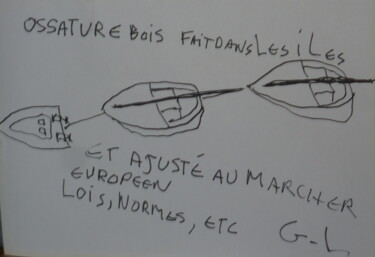 OSSATURE BOIS FAIT DANS LES ILES
ET AJUSTÉ AU MARCHER
EUROPEEN
LOIS, NORMES, ETC
G-L